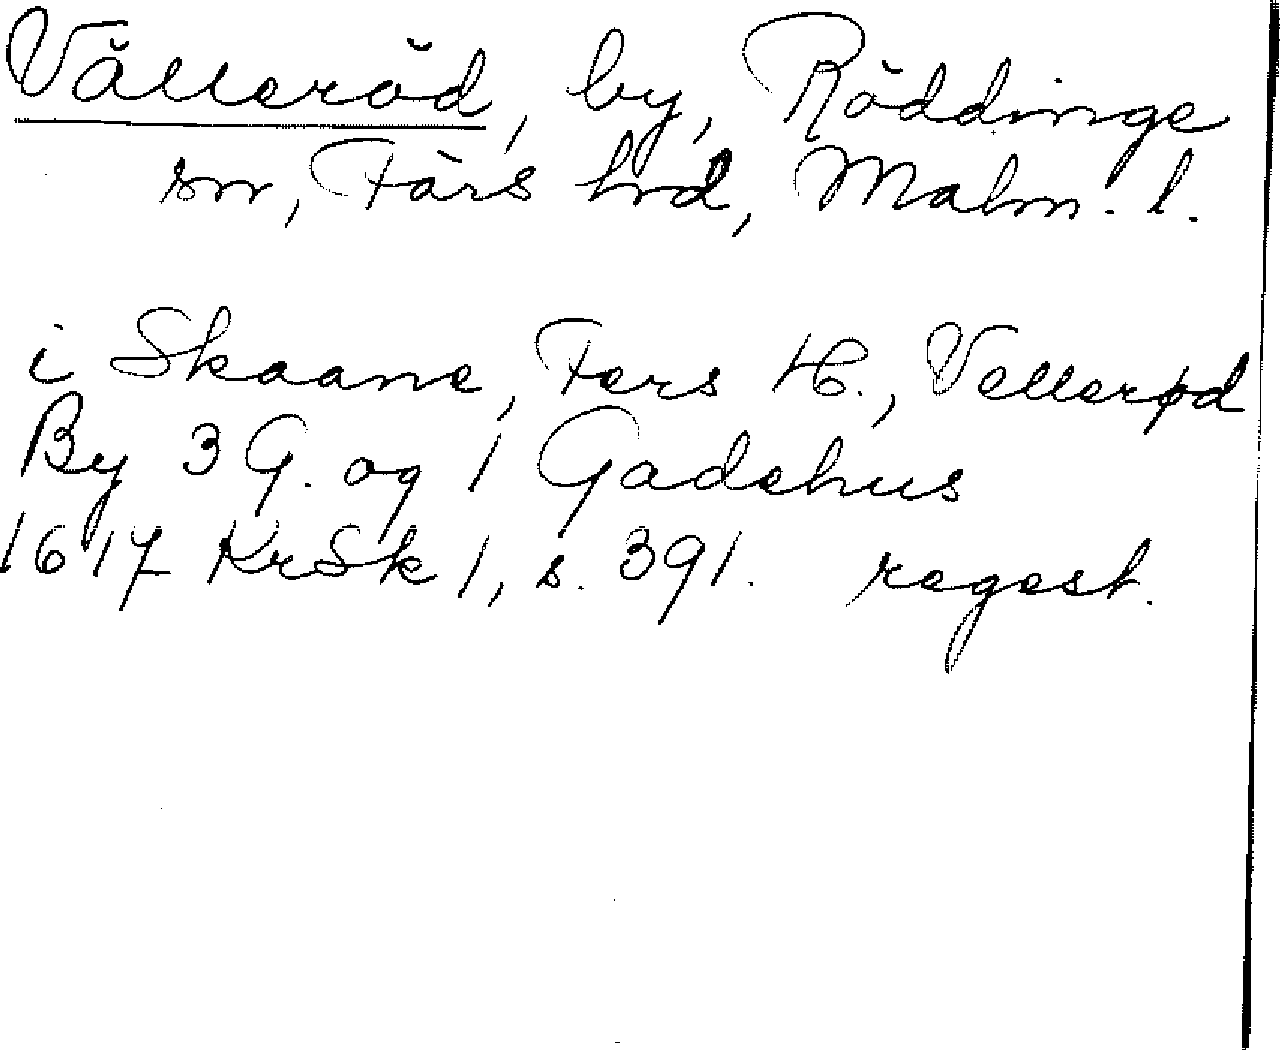 Välleröd, by, Röddinge
sn, Färs hrd, Malm. l.
i Skaane, Fers H., Vellerød
By 3 G. og 1 Gadehus
1617 KrSk 1, s. 391. regest.